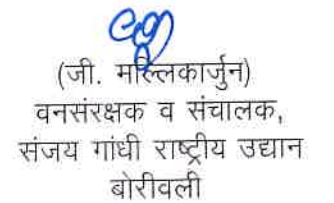 (जी. मल्लिकार्जुन)
वनसंरक्षक व संचालक,
संजय गांधी राष्ट्रीय उद्यान
बोरीवली